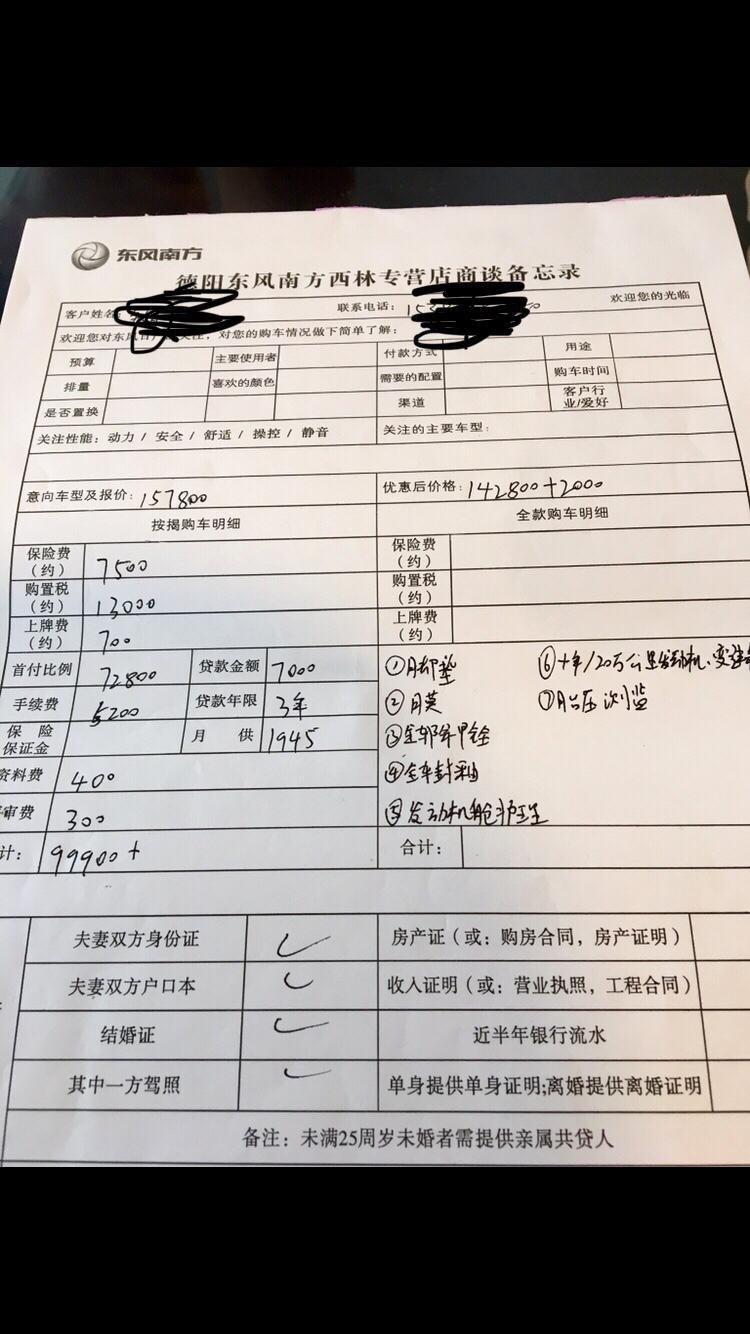 东风南方
德阳东风南方西林专营店商谈备忘录
客户姓名: 联系电话: 欢迎您的光临
欢迎您对东风日 关注，对您的购车情况做下简单了解:
预算 主要使用者 付款方式 用途
排量 喜欢的颜色 需要的配置 购车时间
是否置换 渠道 客户行业/爱好
关注性能: 动力 / 安全 / 舒适 / 操控 / 静音 关注的主要车型:
意向车型及报价: 157800 优惠后价格: 142800+2000
按揭购车明细 全款购车明细
保险费（约） 7500 保险费（约）
购置税（约） 13000 购置税（约）
上牌费（约） 700 上牌费（约）
首付比例 72800 贷款金额 7000 ①脚垫 ⑥十年/20万公里发动机、变速
手续费 5200 贷款年限 3年 ②膜 ⑦胎压测监
保险保证金 月供 1945 ③全部车甲
资料费 400 ④全车封釉
审费 300 ⑤发动机舱护卫
计: 99900+ 合计:
夫妻双方身份证 ✓ 房产证（或: 购房合同，房产证明）
夫妻双方户口本 ✓ 收入证明（或: 营业执照，工程合同）
结婚证 ✓ 近半年银行流水
其中一方驾照 ✓ 单身提供单身证明;离婚提供离婚证明
备注: 未满25周岁未婚者需提供亲属共贷人